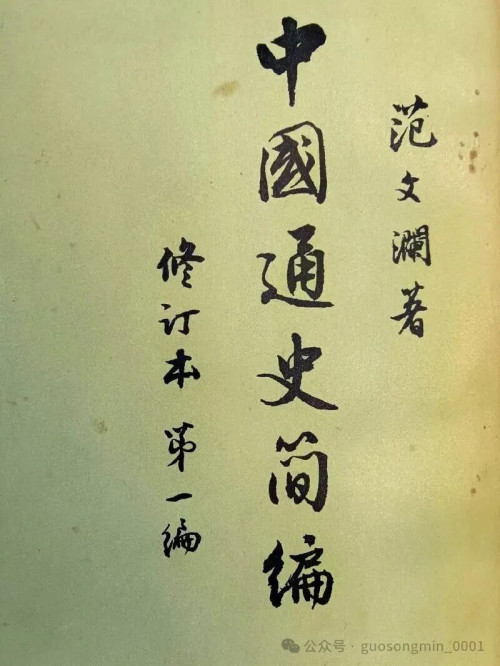 范文瀾著
中國通史简编
修订本 第一编
公众号 · guosongmin_0001